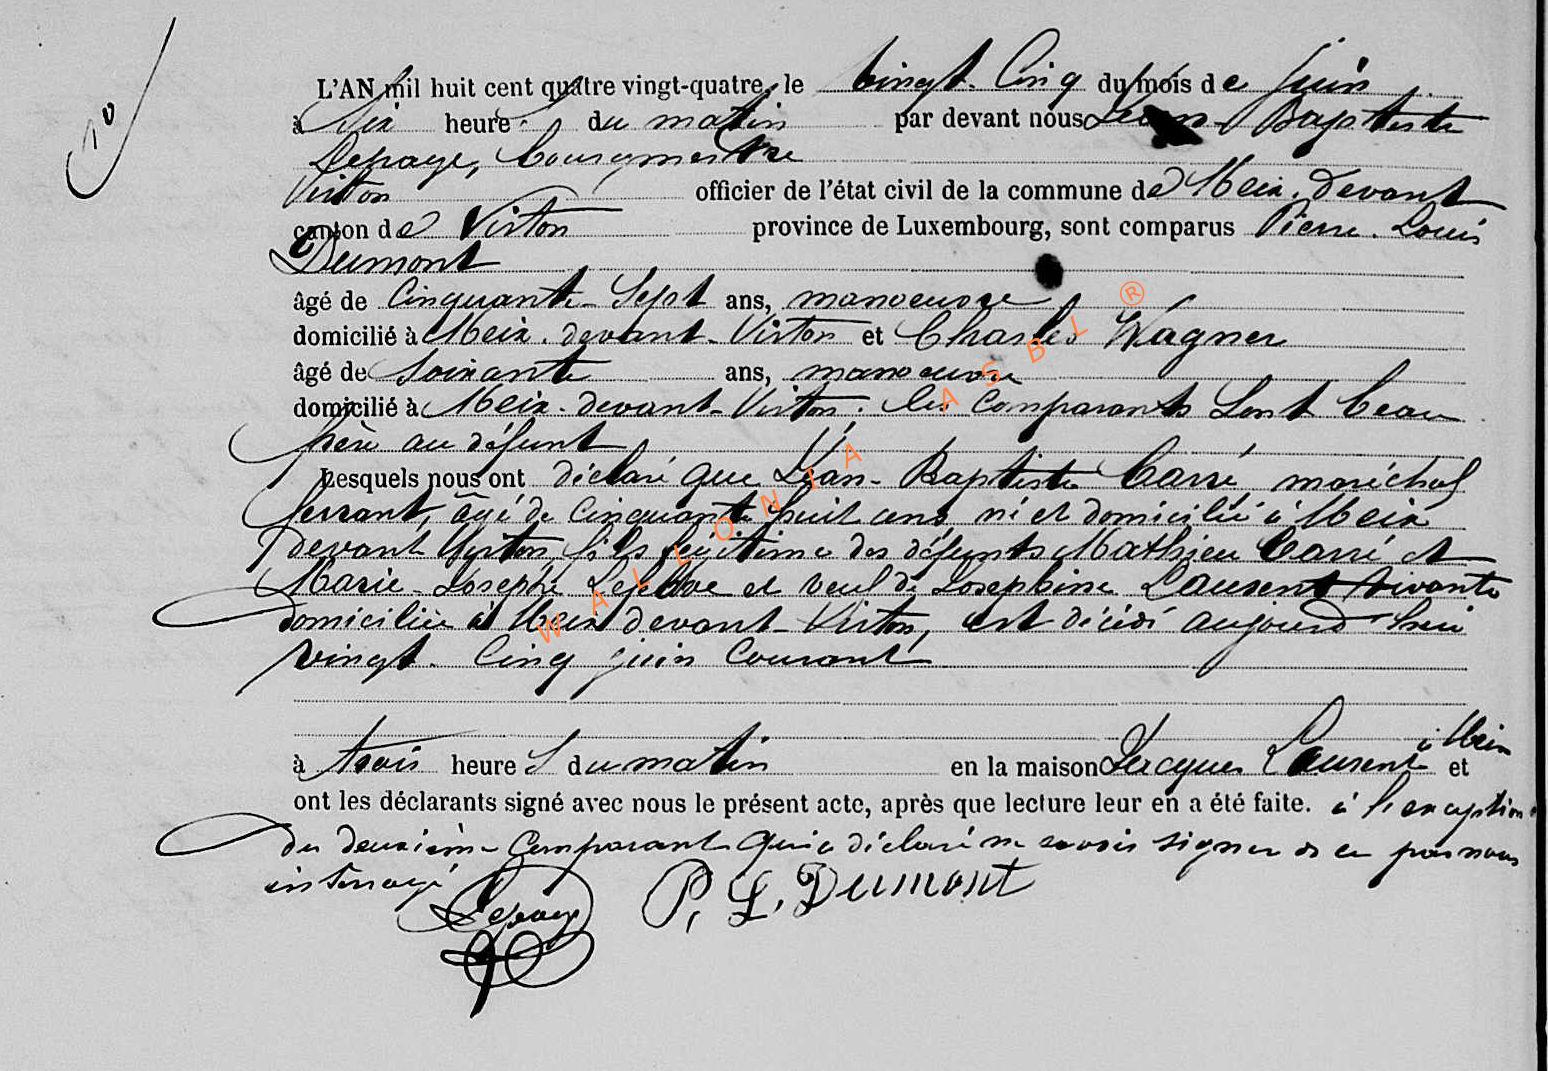 10
L'AN mil huit cent quatre vingt-quatre, le vingt-Cinq du mois de Juin
à Dix heures du matin par devant nous Jean-Baptiste
Lepage, bourgmestre
officier de l'état civil de la commune de Meix-devant
Virton
canton de Virton province de Luxembourg, sont comparus Pierre-Louis
Dumont
âgé de Cinquante-Sept ans, manoeuvre
domicilié à Meix-devant-Virton et Charles Wagner
âgé de Soixante ans, manoeuvre
domicilié à Meix-devant-Virton; les Comparants Sont beau
frère au défunt
Lesquels nous ont déclaré que Jean-Baptiste Carré maréchal
ferrant, âgé de Cinquante huit ans, né et domicilié à Meix
devant Virton, fils légitime des défunts Mathieu Carré et
Marie-Josephe Lefebve et veuf de Josephine Laurent vivante
domiciliée à Meix devant-Virton, est décédé aujourd'hui
vingt-Cinq juin Courant
à Meix
à trois heures du matin en la maison Jacques Laurent et
ont les déclarants signé avec nous le présent acte, après que lecture leur en a été faite. à l'exception
du deuxième Comparant qui a déclaré ne savoir signer de ce par nous
interrogé
Lepage P. L. Dumont
WALLONIA ASBL ®